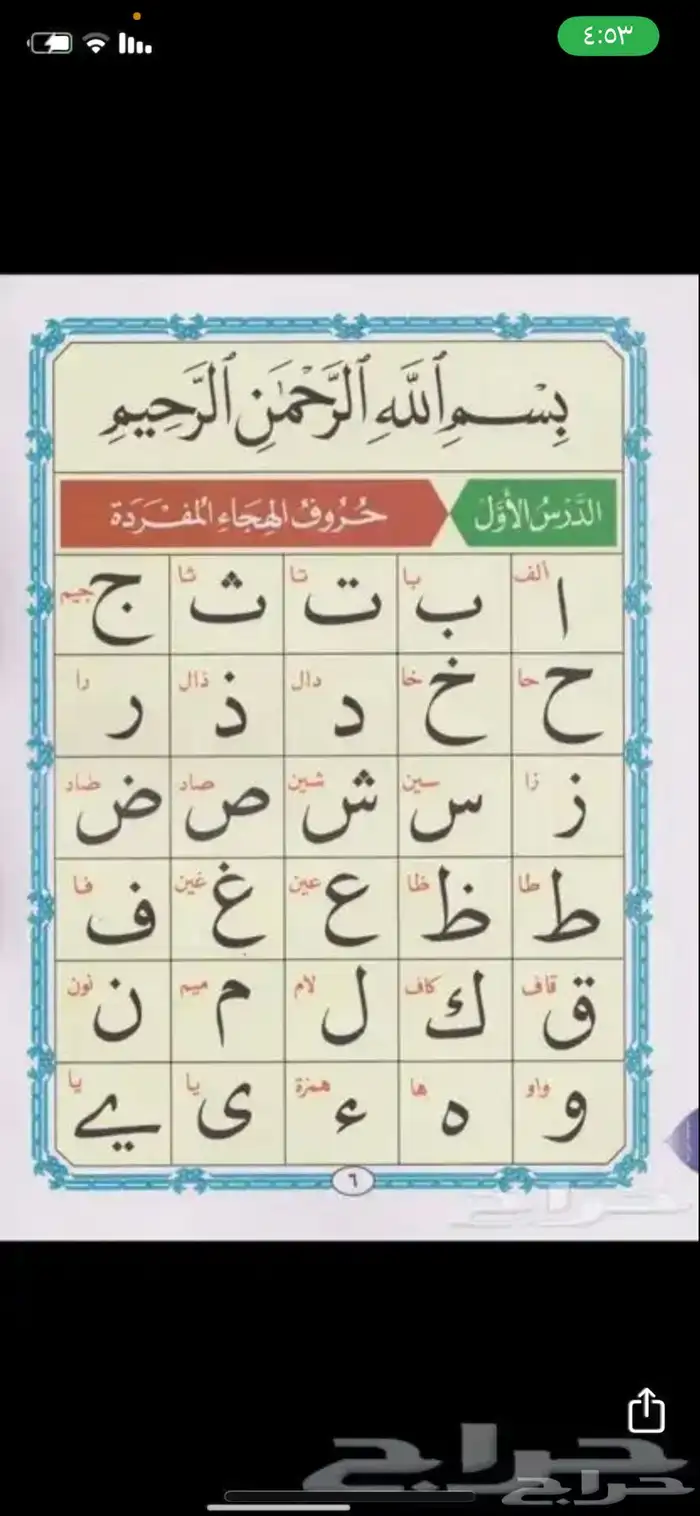 ٤:٥٣
بِسْمِ ٱللَّهِ ٱلرَّحْمَٰنِ ٱلرَّحِيمِ
الدَّرْسُ الأَوَّلُ حُرُوفُ الهِجَاءِ المُفْرَدَة
ا ألف ب با ت تا ث ثا ج جيم
ح حا خ خا د دال ذ ذال ر را
ز زا س سين ش شين ص صاد ض ضاد
ط طا ظ ظا ع عين غ غين ف فا
ق قاف ك كاف ل لام م ميم ن نون
و واو ه ها ء همزة ى يا ے يا
٦
حراج
حراج
حراج